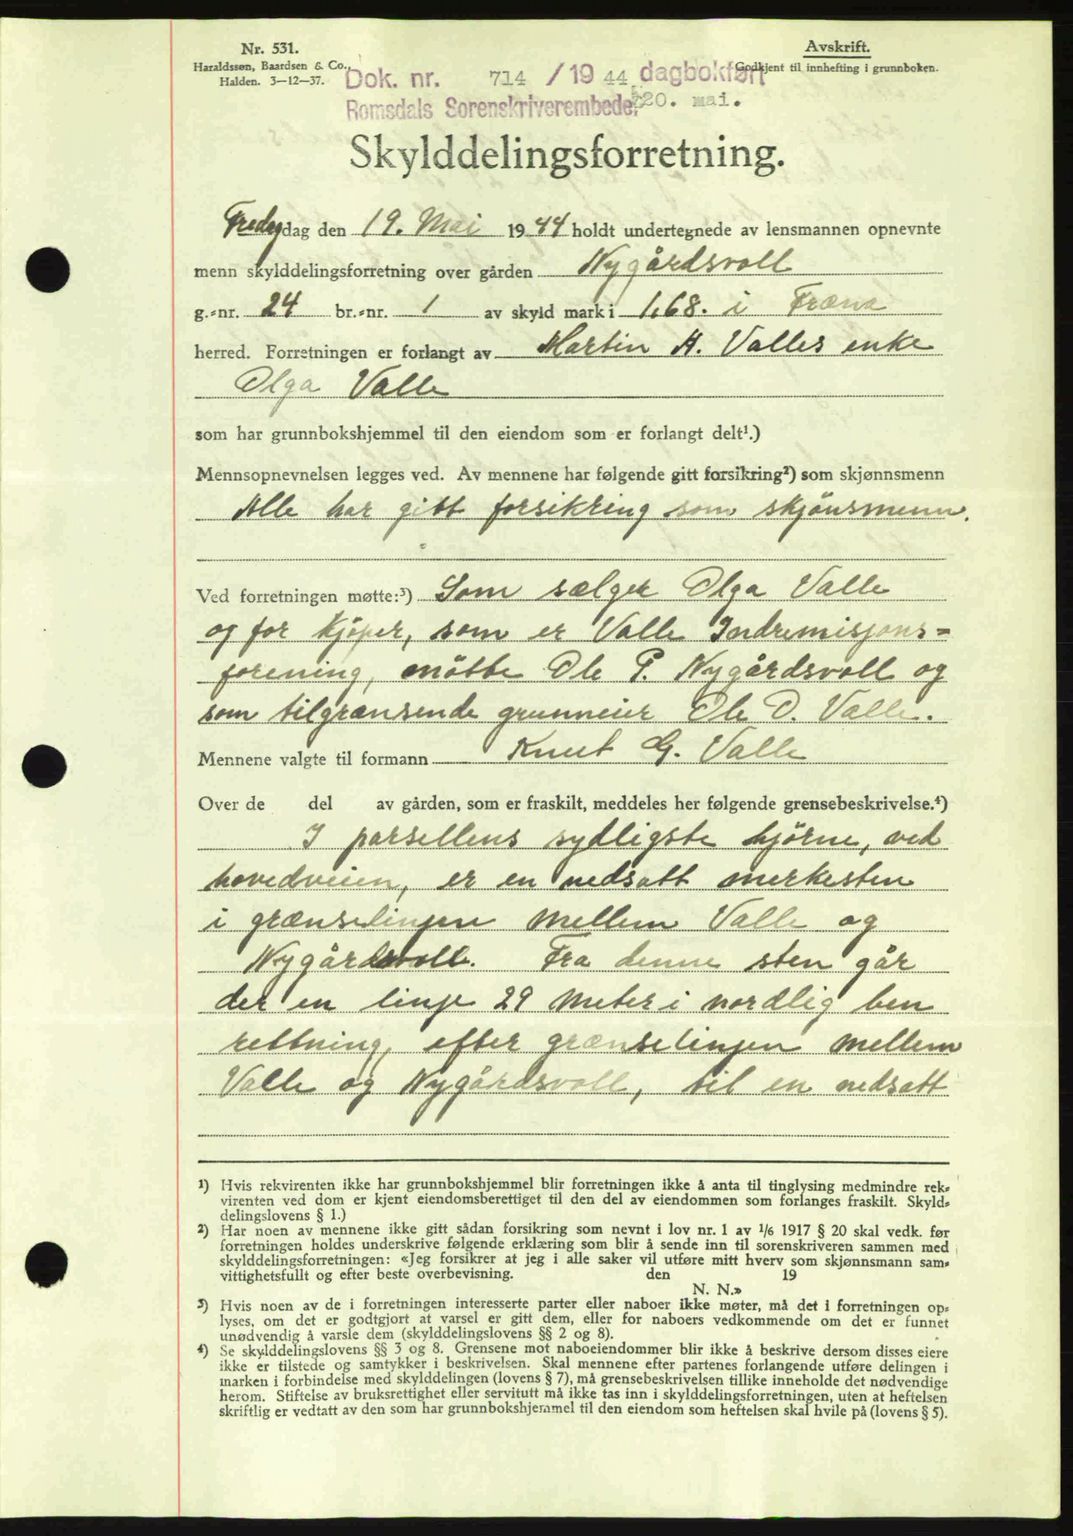 Nr. 531.
Haraldssøn, Baardsen & Co.,
Halden. 3—12—37.
Avskrift.
Godkjent til innhefting i grunnboken.
Dok. nr. 714 / 19 44 dagbokført
Romsdals Sorenskriverembede, 20. mai.
Skylddelingsforretning.
Fredagdag den 19. Mai 1944 holdt undertegnede av lensmannen opnevnte
menn skylddelingsforretning over gården Nygårdsvoll
g.-nr. 24 br.-nr. 1 av skyld mark i 1,68. i Fræna
herred. Forretningen er forlangt av Martin H. Valles enke
Olga Valle
som har grunnbokshjemmel til den eiendom som er forlangt delt¹.)
Mennsopnevnelsen legges ved. Av mennene har følgende gitt forsikring²) som skjønnsmenn
Alle har gitt forsikring som skjönsmenn.
Ved forretningen møtte:³) Som sælger Olga Valle
og for Kjöper, som er Valle Indremisjons=
forening, mötte Ole P. Nygårdsvoll og
som tilgrænsende grunneier Ole O. Valle.
Mennene valgte til formann Knut G. Valle
Over de del av gården, som er fraskilt, meddeles her følgende grensebeskrivelse.⁴)
I parsellens sydligste hjörne, ved
hovedveien, er en nedsatt merkesten
i grænselinjen mellem Valle og
Nygårdsvoll. Fra denne sten går
der en linje 29 meter i nordlig ben
rettning, efter grænselinjen mellem
Valle og Nygårdsvoll, til en nedsatt
¹) Hvis rekvirenten ikke har grunnbokshjemmel blir forretningen ikke å anta til tinglysing medmindre rek-
virenten ved dom er kjent eiendomsberettiget til den del av eiendommen som forlanges fraskilt. Skyld-
delingslovens § 1.)
²) Har noen av mennene ikke gitt sådan forsikring som nevnt i lov nr. 1 av 1/6 1917 § 20 skal vedk. før
forretningen holdes underskrive følgende erklæring som blir å sende inn til sorenskriveren sammen med
skylddelingsforretningen: «Jeg forsikrer at jeg i alle saker vil utføre mitt hverv som skjønnsmann sam-
vittighetsfullt og efter beste overbevisning. den 19
N. N.»
³) Hvis noen av de i forretningen interesserte parter eller naboer ikke møter, må det i forretningen op-
lyses, om det er godtgjort at varsel er gitt dem, eller for naboers vedkommende om det er funnet
unødvendig å varsle dem (skylddelingslovens §§ 2 og 8).
⁴) Se skylddelingslovens §§ 3 og 8. Grensene mot naboeiendommer blir ikke å beskrive dersom disses eiere
ikke er tilstede og samtykker i beskrivelsen. Skal mennene efter partenes forlangende utføre delingen i
marken i forbindelse med skylddelingen (lovens § 7), må grensebeskrivelsen tillike inneholde det nødvendige
herom. Stiftelse av bruksrettighet eller servitutt må ikke tas inn i skylddelingsforretningen, uten at heftelsen
skriftlig er vedtatt av den som har grunnbokshjemmel til den eiendom som heftelsen skal hvile på (lovens § 5).